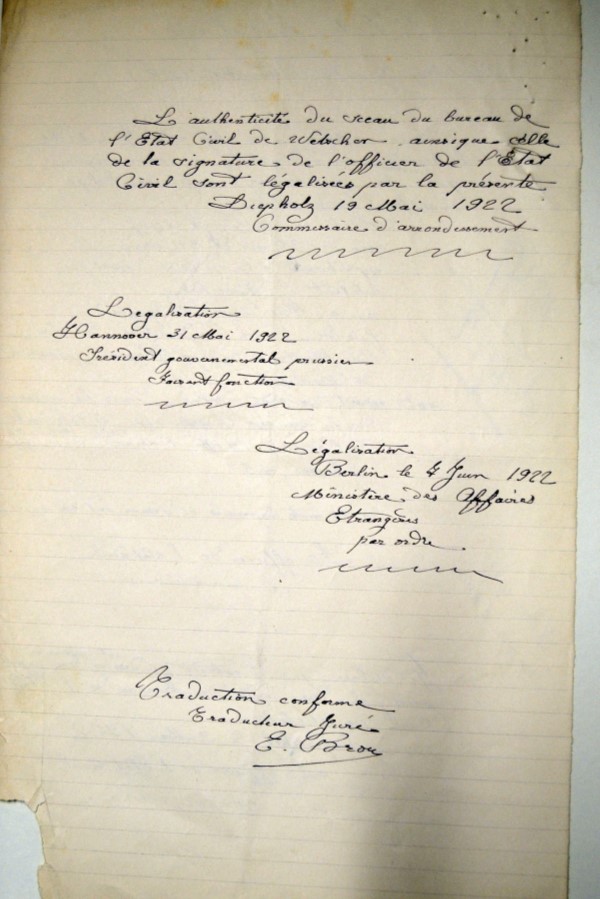 L'authenticité du sceau du bureau de
l'Etat Civil de Wetscher, ainsique celle
de la signature de l'officier de l'Etat
Civil sont légalisées par la présente
Diepholz 19 Mai 1922
Commissaire d'arrondissement
Legalisation
Hannover 31 Mai 1922
Président gouvernemental prussien
Faisant fonction
Légalisation
Berlin le 7 Juin 1922
Ministère des Affaires
Etrangères
par ordre
Traduction conforme
Traducteur Juré
E. Brou